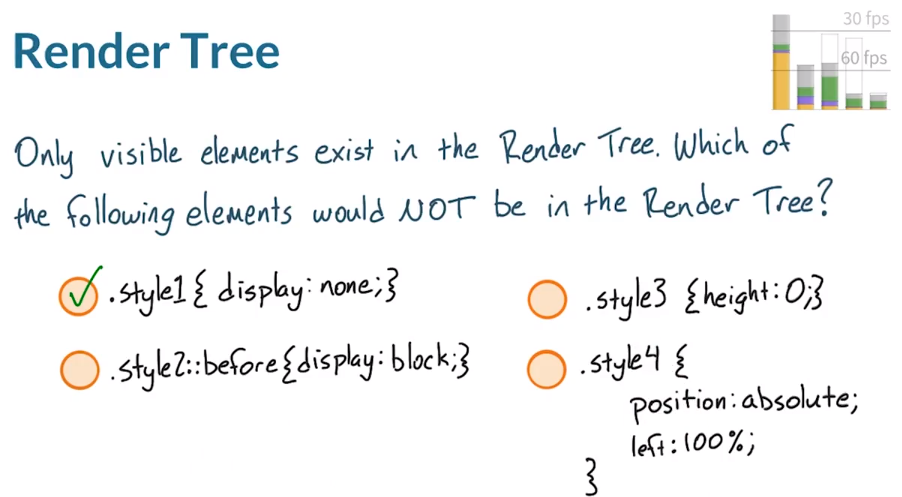 Render Tree
30 fps
60 fps
Only visible elements exist in the Render Tree. Which of
the following elements would NOT be in the Render Tree?
.style1 { display: none; }
.style2::before {display: block;}
.style3 {height: 0;}
.style4 {
position: absolute;
left: 100%;
}